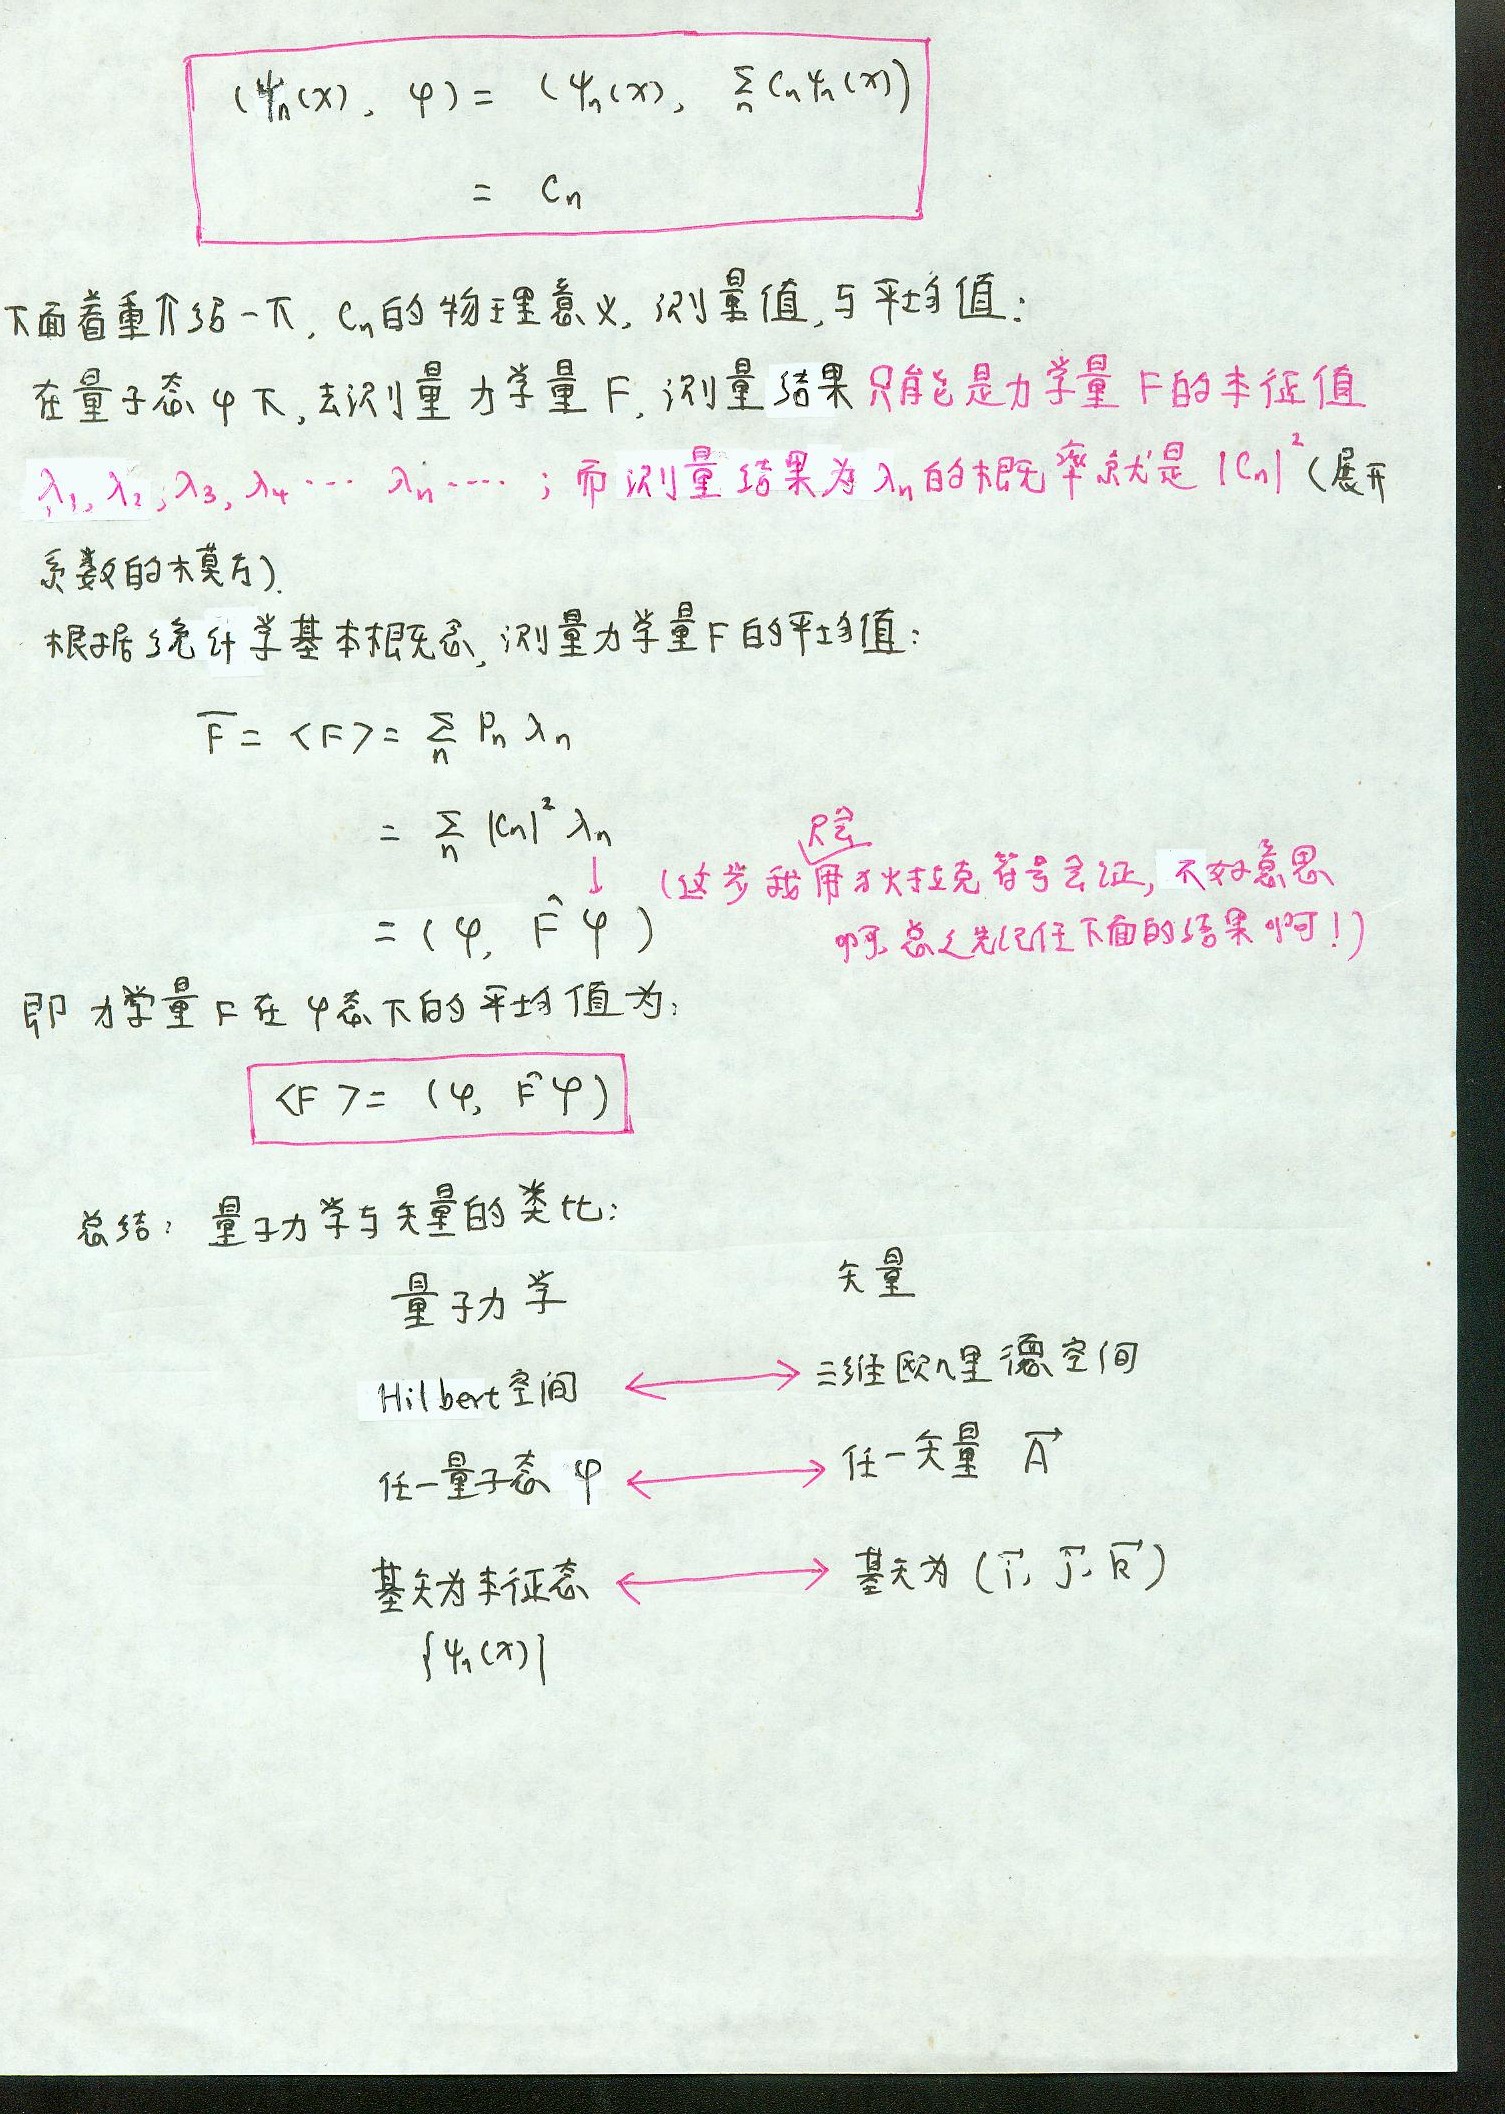 (ψn(x), φ) = (ψn(x), Σn Cnψn(x))
= Cn
下面着重介绍一下, Cn的物理意义, 测量值, 与平均值:
在量子态φ下, 去测量力学量F, 测量结果只能是力学量F的本征值
λ1, λ2, λ3, λ4 ··· λn ···· ; 而测量结果为λn的概率就是|Cn|² (展开
系数的模方).
根据统计学基本概念, 测量力学量F的平均值:
F̅ = <F> = Σn Pn λn
= Σn |Cn|² λn
只会
↓ (这步我用狄拉克符号会证, 不好意思
= (φ, F̂φ) 啊, 总之先记住下面的结果啊!)
即力学量F在φ态下的平均值为:
<F> = (φ, F̂φ)
总结: 量子力学与矢量的类比:
量子力学 矢量
Hilbert空间 ⟷ 三维欧几里德空间
任一量子态 φ ⟷ 任一矢量 A⃗
基矢为本征态 ⟷ 基矢为 (i⃗, j⃗, k⃗)
{ψn(x)}